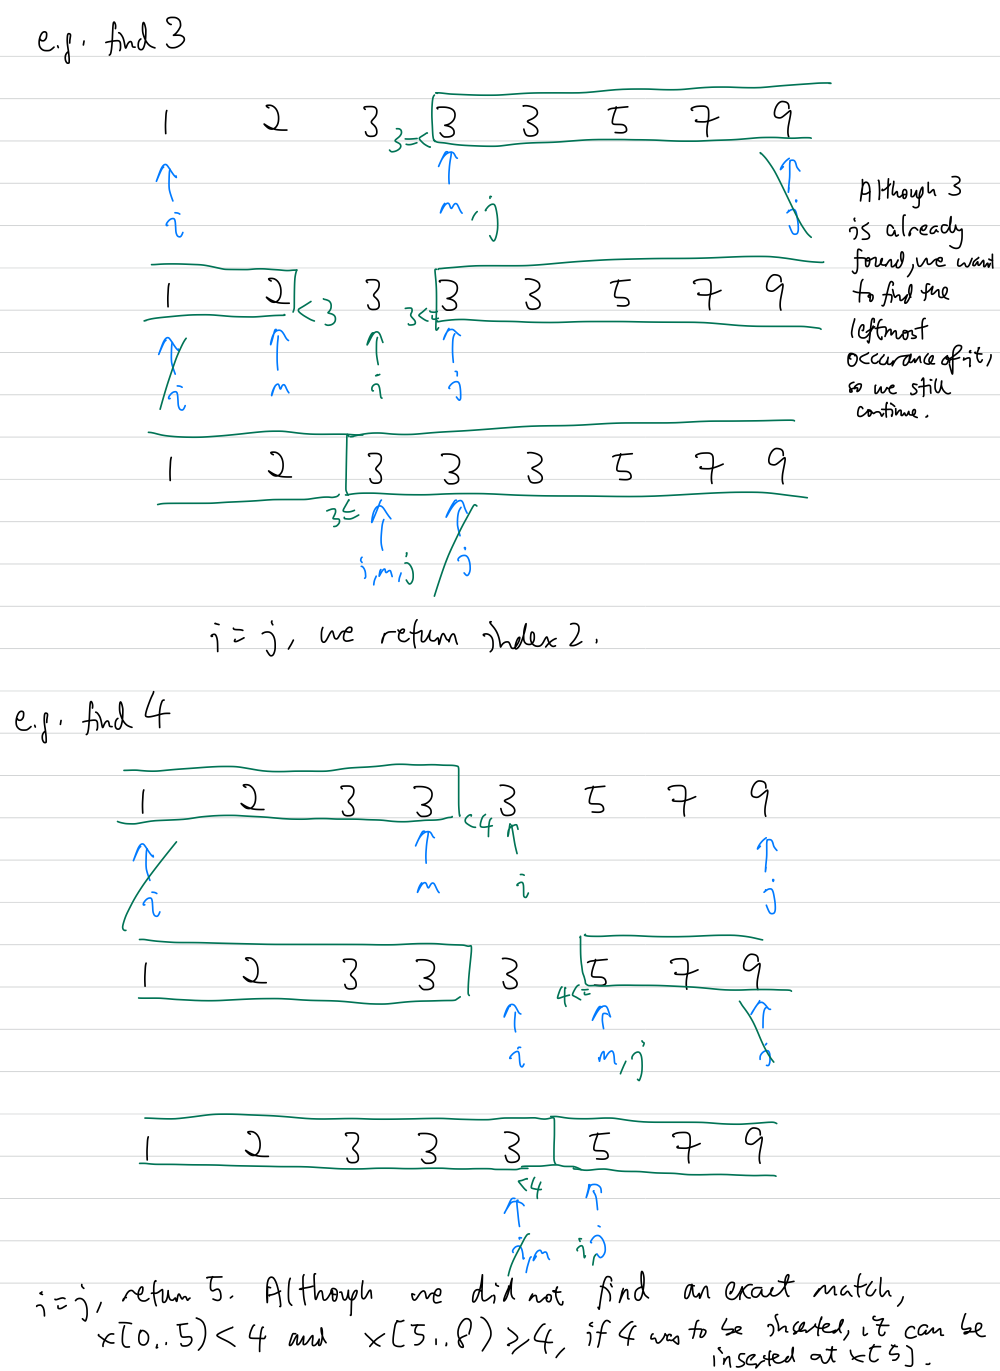 e.g. find 3
1 2 3 3=< 3 3 5 7 9
i m, j j
Although 3
is already
found, we want
to find the
leftmost
occurance of it,
so we still
continue.
1 2 <3 3 3<= 3 3 5 7 9
i m i j
1 2 3 3 3 5 7 9
3≤
i,m,j j
i = j, we return index 2.
e.g. find 4
1 2 3 3 <4 3 5 7 9
i m i j
1 2 3 3 3 4<= 5 7 9
i m,j j
1 2 3 3 3 5 7 9
<4
i,m i,j
i=j, return 5. Although we did not find an exact match,
x[0..5) < 4 and x[5..8) ≥ 4, if 4 was to be inserted, it can be
inserted at x[5].